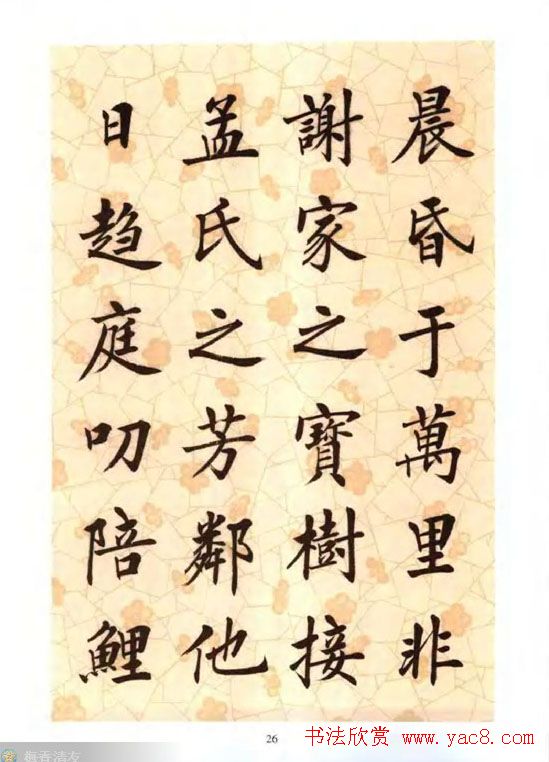 晨昏于萬里非
謝家之寶樹接
孟氏之芳鄰他
日趋庭叨陪鯉
26
书法欣赏 www.yac8.com
梅香清友